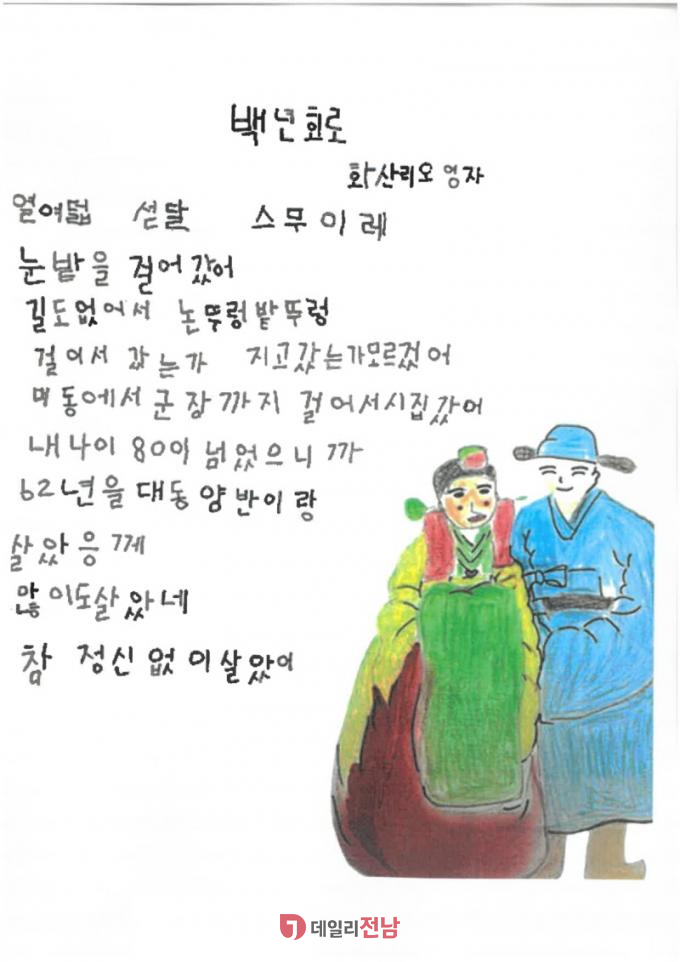 백년회로
화산리오영자
열여덟 섣달 스무이레
눈밭을 걸어갔어
길도없어서 논뚜렁밭뚜렁
걸어서 갔는가 지고갔는가모르겄어
며동에서 군장까지 걸어서시집갔어
내나이 80이 넘었으니까
62년을 대동양반이랑
살았응께
많이도살았네
참 정신없이살았어
데일리전남